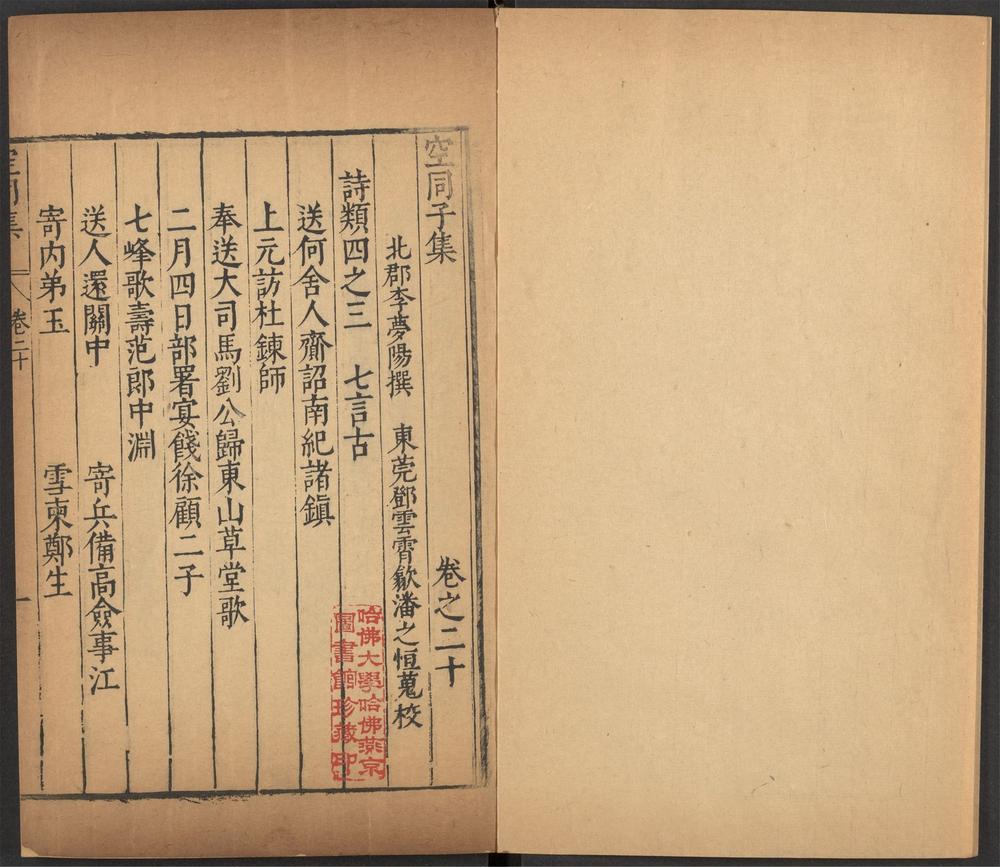 空同子集　卷之二十
北郡李夢陽撰　東莞鄧雲霄歙潘之恒蒐校
詩類四之三　七言古
送何舍人齎詔南紀諸鎮
上元訪杜鍊師
奉送大司馬劉公歸東山草堂歌
二月四日部署宴餞徐顧二子
七峰歌壽范郎中淵
送人還關中　寄兵備高僉事江
寄内弟玉　雪柬鄭生
空同集　卷二十　一
哈佛大學哈佛燕京
圖書館珍藏印